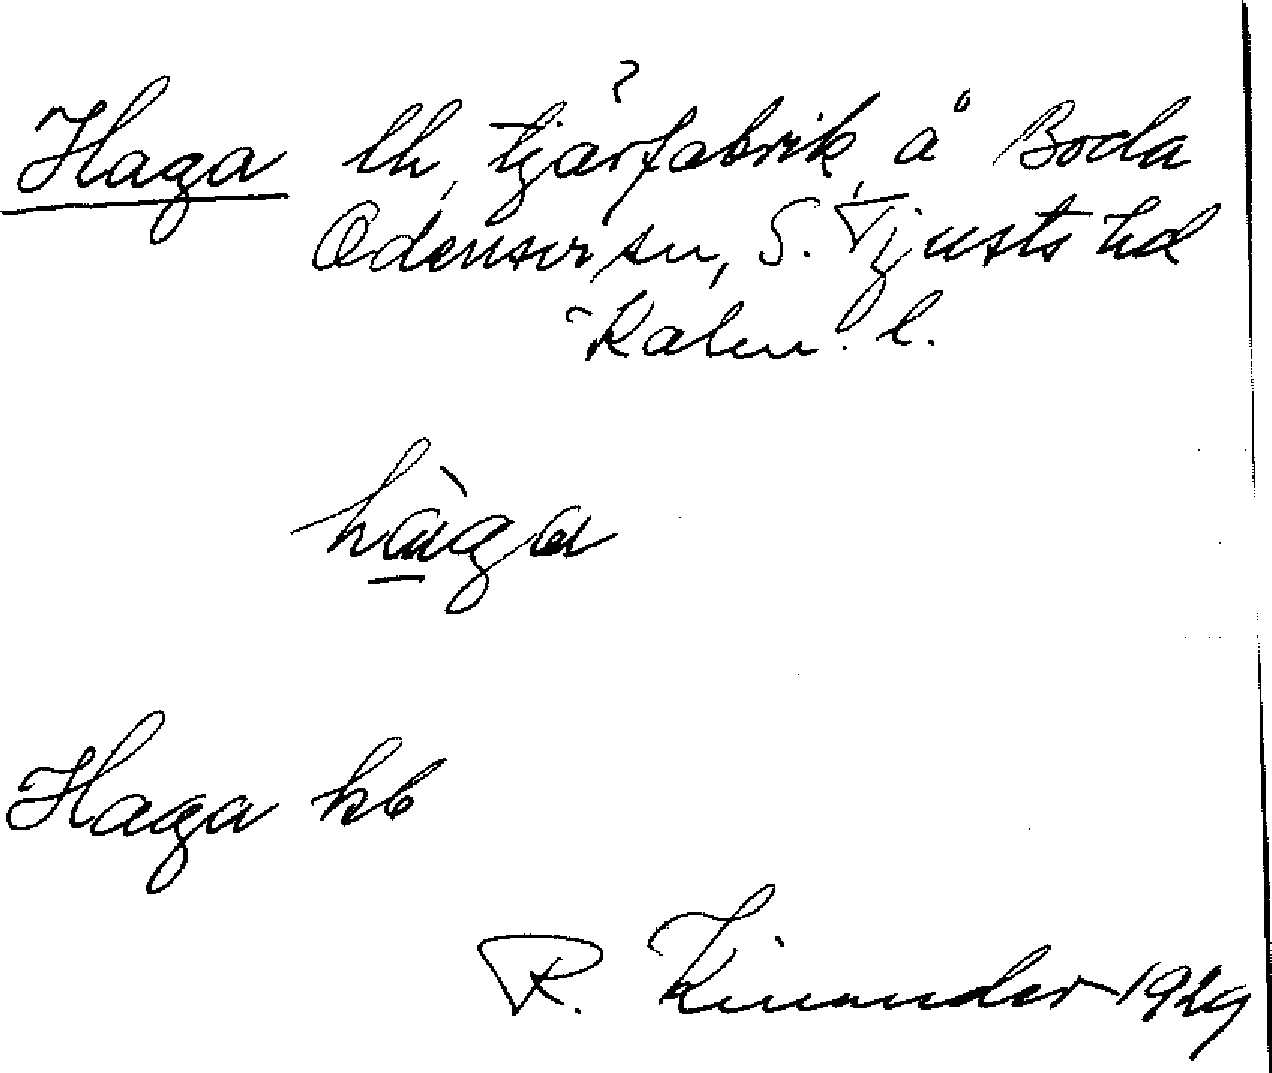 ?
Haga lh, tjärfabrik, å Boda
Odensvi sn, S. Tjusts hd
Kalm. l.
hàga
Haga kb
R. Kinander 1929